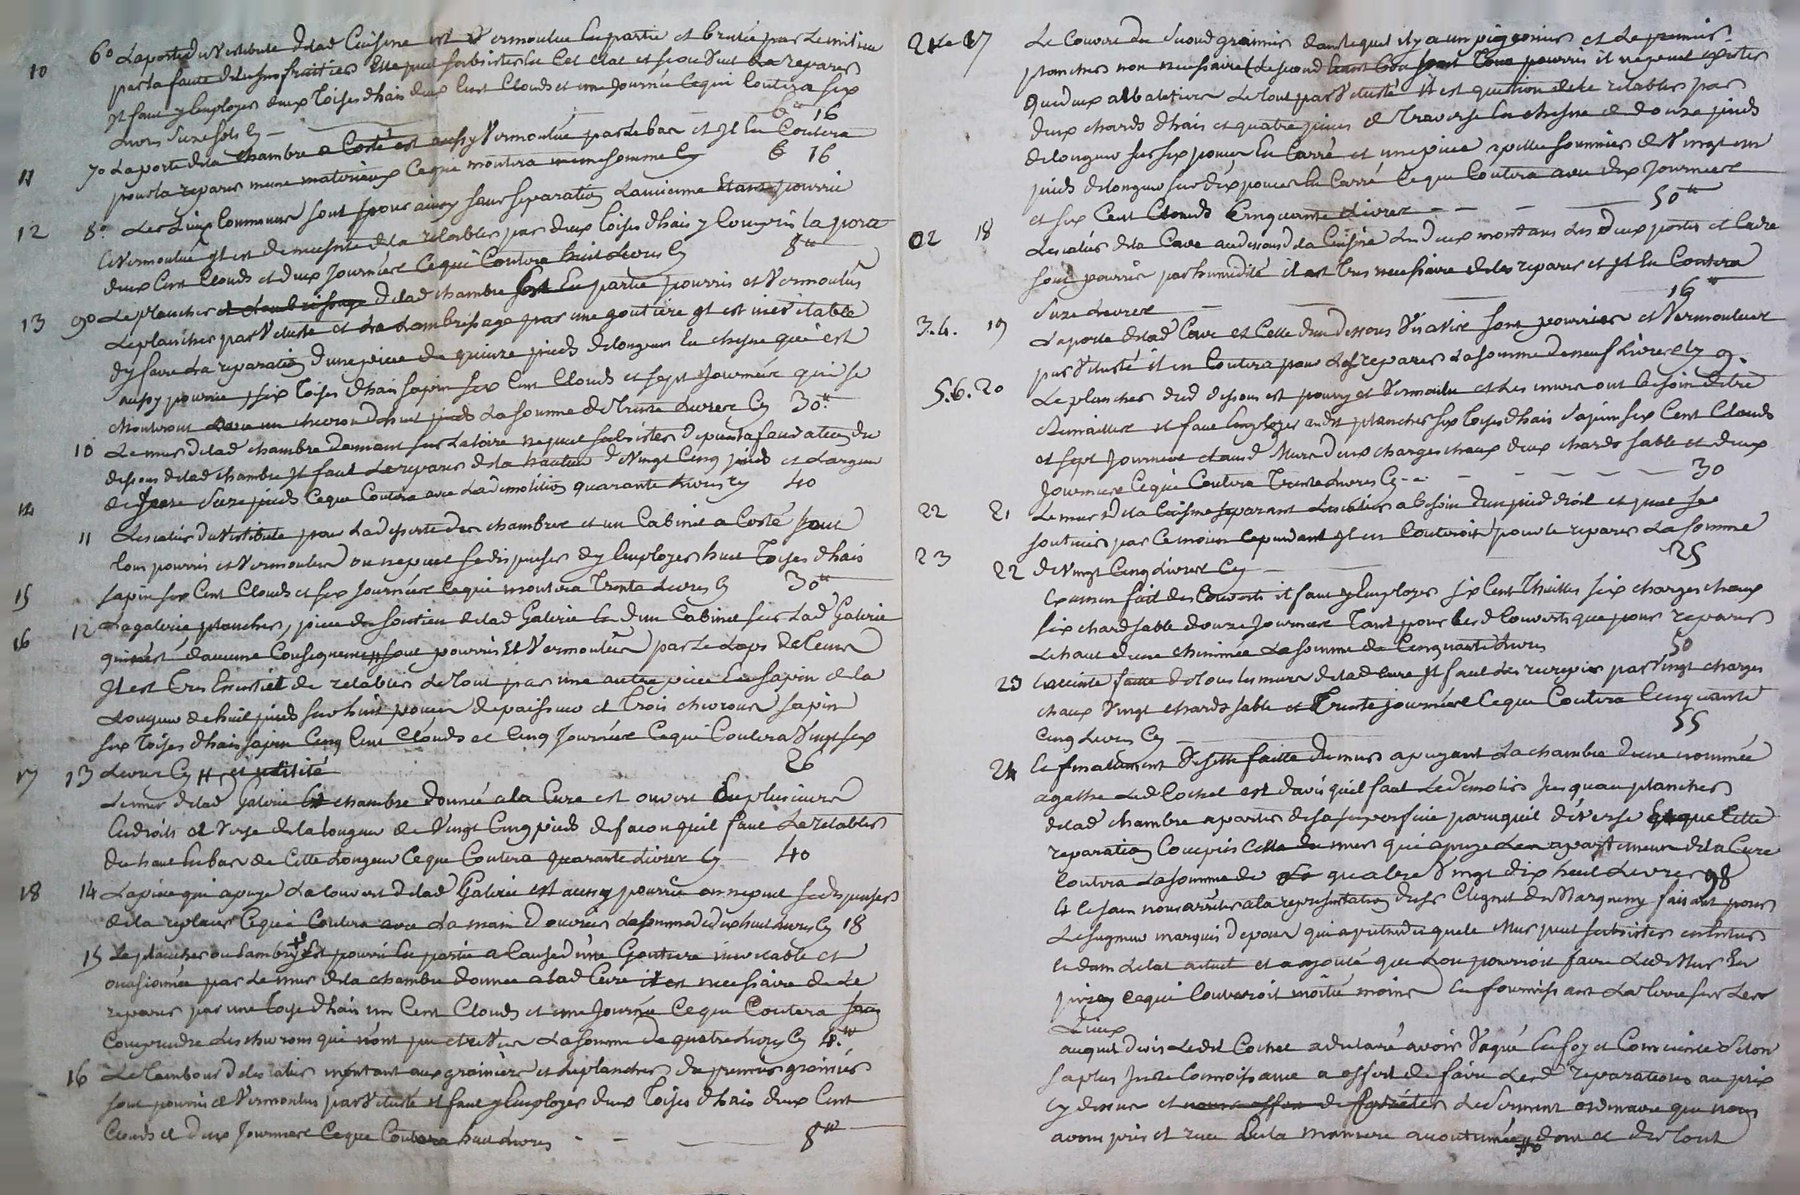 10 6o La porte du Vestibule de lad Cuisine est Vermoulue en partie et brulée par le milieu
par la faute de l'usufruitier Elle peut subsister en cet etat et si on veut la reparer
Il faut y employer deux Toises d'hais deux Cent Clouds et une Journée Ce qui Coutera six
Livres seize sols Cy 6tt 16
11 7o La porte de la Chambre a Costé est aussy Vermoulue par le bas et Il en Coutera
pour la reparer meme materieaux Ce que montera meme somme Cy 6 16
12 8o Les Lieux Communs sont pour ainsy sans separation L'ancienne Etant pourrie
et Vermoulue Il est de necessité de la retablir par deux Toises d'hais y Compris la porte
deux Cent Clouds et deux Journées Ce qui Coutera huit Livres Cy 8tt
13 9o Le plancher et Lambrissage de lad chambre sont En partie pourris et Vermoulus
Le plancher par Vetusté et Le Lambrissage par une goutiere Il est inévitable
d'y faire La reparation d'une piece de quinze pieds de longueur en chesne qui est
aussy pourrie, six Toises d'hais sapin six Cent Clouds et sept Journées qui se
Monteront a La somme de Trente Livres Cy 30tt
10 Le mur de lad chambre donnant sur La Loire ne peut subsister depuis la fondation du
dessous de lad chambre Il faut Le reparer de la hauteur de Vingt Cinq pieds et Largeur
de seize pieds Ce que Coutera avec La demolition quarante Livres Cy 40
14 11 Les aix du Vestibule pour La desserte des chambres et un Cabinet a Costé sont
tous pourris et Vermoulus on ne peut se dispenser d'y Employer huit Toises d'hais
15 sapin six Cent Clouds et six Journées Ce qui montera Trente Livres Cy 30tt
16 12 La galerie plancher, piece du soutien de lad Galerie et d'un Cabinet sur Lad Galerie
qui n'est d'aucune Consequence # sont pourris Et Vermoulus par Le Laps de Tems
Il est Tres Essentiel de retablir de Tout par une autre piece En sapin de la
Longueur de huit pieds sur huit pouces d'epaisseur et Trois chevrons sapin
six Toises d'hais sapin Cinq Cent Clouds et Cinq Journées Ce qui Coutera Vingt six
Livres Cy # et utilité 26
17 13 Le mur de lad Galerie et chambre donnée a la Cure est ouvert En plusieurs
Endroits et Verse de la longueur de Vingt Cinq pieds de façon qu'il faut Le retablir
du haut En bas de Cette Longueur Ce que Coutera quarante Livres Cy 40
18 14 La piece qui apuye La Couvert de lad Galerie est aussy pourrie on ne peut se dispenser
de la replacer Ce qui Coutera avec La main d'ouvrier La somme de dix huit Livres Cy 18
15 Le plancher ou Lambris est pourri En partie a Cause d'une Goutiere inevitable et
ocasionnée par Le mur de la chambre donnée a lad Cure il est necessaire de Le
reparer par une toise d'hais un Cent Clouds et une Journée Ce que Coutera sans
Comprendre Les chevrons qui n'ont pu etre Vus La somme de quatre Livres Cy 4tt
16 Le Tambour des escaliers montant aux greniers et Le plancher du premier grenier
sont pourris et Vermoulus par Vetusté Il faut y Employer deux Toises d'hais deux Cent
Clouds et deux Journées Ce que Coutera huit Livres 8tt
17 Le Couvert du second grenier dans lequel il y a un pigeonier et Le premier
plancher non necessaire Le second sont Tous pourris il n'y peut exister
qu'eux Le tout par Vetusté Il est question de le retablir par
deux chards d'hais et quatre pieces de Traverse En chesne de douze pieds
de longueur sur six pouces En Carré et une piece apellée sommier de Vingt un
pieds de longueur sur dix pouces En Carré Ce que Coutera avec dix Journées
et six Cent Clouds Cinquante Livres 50tt
02 18 Les aliés de la Cave au dessous de la Cuisine Les deux montans des deux portes et Cadre
sont pourris par humidité il est Tres necessaire de les reparer et Il En Coutera
Seize Livres 16tt
3.4. 19 La porte de lad Cave et Celle d'un dessous Vis a Vis sont pourries et Vermoulues
par Vetusté il en Coutera pour Les reparer La somme de neuf Livres Cy 9.
5.6. 20 Le plancher dud dessous est pourry et Vermoulu et Les murs ont besoin d'etre
et faut Employer aud plancher six Toises d'hais sapin six Cent Clouds
et sept Journées et aud Murs deux charges chaux deux chards sable et deux
Journées Ce qui Coutera Trente Livres Cy 30
22 21 Le mur de la Cuisine separant Les aliés a besoin d'un pied droit et peut se
soutenir par Ce moien Cependant Il en Couteroit pour le reparer La somme
23 de Vingt Cinq Livres Cy 25
22 Examen fait des Couverts il faut y Employer six Cent Thuilles six charges chaux
six chards sable douze Journées Tant pour Led Couverts que pour reparer
Le haut d'une cheminée La somme de Cinquante Livres 50
23 Visite faite de Tous Les murs de lad Cure Il faut Les recrepir par Vingt charges
chaux Vingt chards sable et Trente journées Ce que Coutera Cinquante
Cinq Livres Cy 55
24 Et finallement Visite faitte du mur apuyant La chambre d'une nommée
agathe Led Cochet est d'avis qu'il faut Le demolir Jusqu'au plancher
de lad chambre a partir de sa superficie parce qu'il deverse Et que Cette
reparation Compris Celle du mur qui apuye Les apartemens de la Cure
Coutera La somme de quatre Vingt dix huit Livres 98
Et Le sieur nous arreter a la representation du sr Clugnet de Marguery faisant pour
Le seigneur marquis qui a pretendu que le Mur peut subsister
Et dans L'etat actuel et a ajouté que L'on pourroit faire Led Mur En
pizey Ce qui Couteroit moitié moins En fournissant La Terre sur Les
Lieux
auquel devis Led Cochet a declaré avoir Vaqué En foy et Conscience selon
sa plus Juste Connoissance a offert de faire Lesd reparations au prix
Cy dessus et Le serment ordinaire que nous
avons pris et receu En la maniere acoutumée dont et du tout